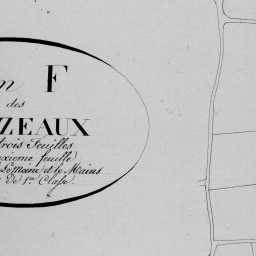 n F
des
ZEAUX
trois Feuilles
uxieme feuille
Lemoine et le Mains
de 1re Classe.